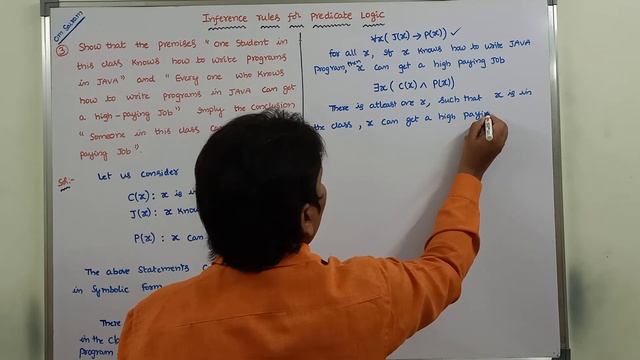 Om Sairam
Inference rules for Predicate Logic
③ Show that the premises "One Student in
this class knows how to write programs
in JAVA" and "Every one who knows
how to write programs in JAVA can get
a high-paying Job" Imply the conclusion
"Someone in this class can
paying Job".
Sol:- Let us consider
C(x): x is in
J(x): x know
P(x): x can
The above Statements
in Symbolic Form
There
in the cl
program
∀x( J(x) → P(x)) ✓
for all x, If x knows how to write JAVA
Program, then x can get a high paying Job
∃x( C(x) ∧ P(x))
There is atleast one x, such that x is in
the class, x can get a high payin